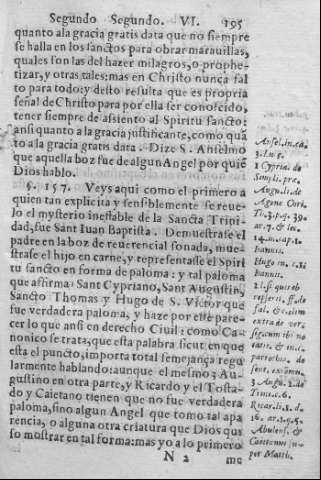 Segundo Segundo. VI. 195
quanto ala gracia gratis data que no siempre
se halla en los sanctos para obrar marauillas,
quales son las del hazer milagros, o prophe-
tizar, y otras tales: mas en Christo nunca fal
to para todo: y desto resulta que es propria
señal de Christo para por ella ser conoscido,
tener siempre de assiento al Spiritu sancto:
ansi quanto a la gracia justificante, como quã
to a la gracia gratis data. Dize S. Anselmo
que aquella boz fue de algun Angel por quiẽ
Dios hablo.
§. 157. Veys aqui como el primero a
quien tan explicita y sensiblemente se reue-
lo el mysterio inefable de la Sancta Trini-
dad, fue Sant Iuan Baptista. Demuestrase el
padre en la boz de reuerencial sonada, mue-
strase el hijo en carne, y representase el Spiri
tu sancto en forma de paloma: y tal paloma
que affirma Sant Cypriano, Sant Augustin,
Sancto Thomas y Hugo de S. Victor que
fue verdadera paloma, y haze por este pare-
cer lo que ansi en derecho Ciuil: como Ca-
nonico se trata, que esta palabra sicut en que
esta el puncto, importa total semejança regu
larmente hablando: aunque el mesmo Au-
gustino en otra parte, y Ricardo y el Tosta-
do y Caietano tienen que no fue verdadera
paloma, sino algun Angel que tomo tal apa
rencia, o alguna otra criatura que Dios qui
so mostrar en tal forma: mas yo a lo primero
N 2 me
Ansel. in ca.
3. Lu c.
1 Cypria. de
Simpli. pre.
Augu. li. de
Agone Chri.
Th. 3. p. q. 39.
ar. 7. &
Hugo in
2 l. si quis
extra de ver.
3 Augu. 2. de
Trini. c. 6.
Ricar. li. 1. d.
16. ar. 3. q. 5.
Abulens. &
Caietanus su-
per Matth.